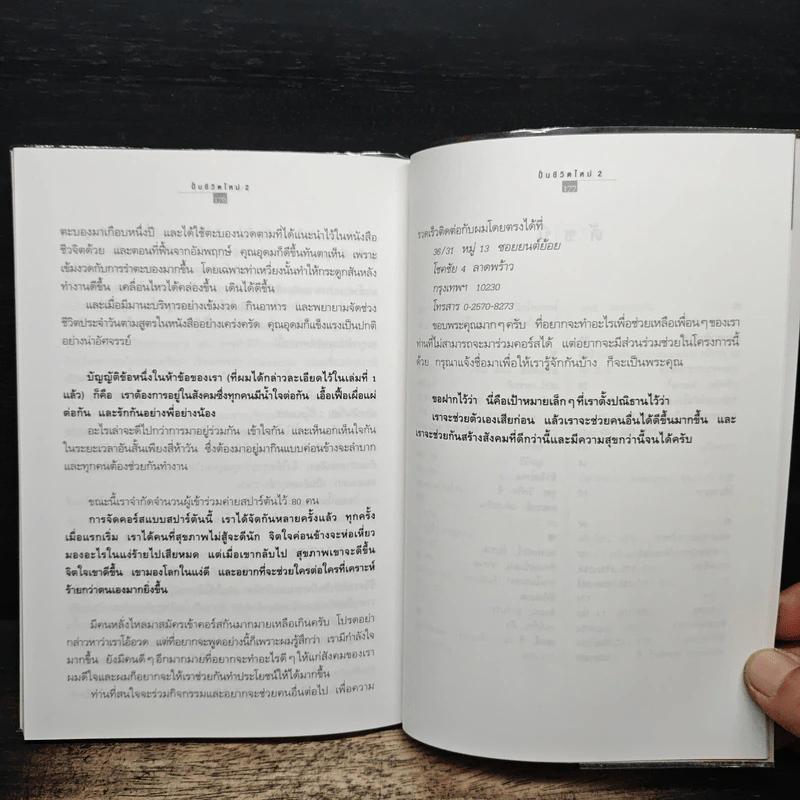 ปั้นชีวิตใหม่ 2
ตะบองมาเกือบหนึ่งปี และได้ใช้ตะบองนวดตามที่ได้แนะนำไว้ในหนังสือ
ชีวจิตด้วย และตอนที่ฟื้นจากอัมพฤกษ์ คุณอุดมก็ดีขึ้นทันตาเห็น เพราะ
เข้มงวดกับการรำตะบองมากขึ้น โดยเฉพาะท่าเหวี่ยงนั้นทำให้กระดูกสันหลัง
ทำงานดีขึ้น เคลื่อนไหวได้คล่องขึ้น เดินได้ดีขึ้น
และเมื่อมีมานะบริหารอย่างเข้มงวด กินอาหาร และพยายามจัดช่วง
ชีวิตประจำวันตามสูตรในหนังสืออย่างเคร่งครัด คุณอุดมก็แข็งแรงเป็นปกติ
อย่างน่าอัศจรรย์
บัญญัติข้อหนึ่งในห้าข้อของเรา (ที่ผมได้กล่าวละเอียดไว้ในเล่มที่ 1
แล้ว) ก็คือ เราต้องการอยู่ในสังคมซึ่งทุกคนมีน้ำใจต่อกัน เอื้อเฟื้อเผื่อแผ่
ต่อกัน และรักกันอย่างพี่อย่างน้อง
อะไรเล่าจะดีไปกว่าการมาอยู่ร่วมกัน เข้าใจกัน และเห็นอกเห็นใจกัน
ในระยะเวลาอันสั้นเพียงสี่ห้าวัน ซึ่งต้องมาอยู่มากินแบบค่อนข้างจะลำบาก
และทุกคนต้องช่วยกันทำงาน
ขณะนี้เราจำกัดจำนวนผู้เข้าร่วมค่ายสปาร์ตันไว้ 80 คน
การจัดคอร์สแบบสปาร์ตันนี้ เราได้จัดกันหลายครั้งแล้ว ทุกครั้ง
เมื่อแรกเริ่ม เราได้คนที่สุขภาพไม่สู้จะดีนัก จิตใจค่อนข้างจะห่อเหี่ยว
มองอะไรในแง่ร้ายไปเสียหมด แต่เมื่อเขากลับไป สุขภาพเขาจะดีขึ้น
จิตใจเขาดีขึ้น เขามองโลกในแง่ดี และอยากที่จะช่วยใครต่อใครที่เคราะห์
ร้ายกว่าตนเองมากยิ่งขึ้น
มีคนหลั่งไหลมาสมัครเข้าคอร์สกันมากมายเหลือเกินครับ โปรดอย่า
กล่าวหาว่าเราโอ้อวด แต่ที่อยากจะพูดอย่างนี้ก็เพราะผมรู้สึกว่า เรามีกำลังใจ
มากขึ้น ยังมีคนดีๆ อีกมากมายที่อยากจะทำอะไรดีๆ ให้แก่สังคมของเรา
ผมดีใจและผมก็อยากจะให้เราช่วยกันทำประโยชน์ให้ได้มากขึ้น
ท่านที่สนใจจะร่วมกิจกรรมและอยากจะช่วยคนอื่นต่อไป เพื่อความ
ปั้นชีวิตใหม่ 2
177
รวดเร็วติดต่อกับผมโดยตรงได้ที่
36/31 หมู่ 13 ซอยยนต์ย้อย
โชคชัย 4 ลาดพร้าว
กรุงเทพฯ 10230
โทรสาร 0-2570-8273
ขอบพระคุณมากๆ ครับ ที่อยากจะทำอะไรเพื่อช่วยเหลือเพื่อนๆ ของเรา
ท่านที่ไม่สามารถจะมาร่วมคอร์สได้ แต่อยากจะมีส่วนร่วมช่วยในโครงการนี้
ด้วย กรุณาแจ้งชื่อมาเพื่อให้เรารู้จักกันบ้าง ก็จะเป็นพระคุณ
ขอฝากไว้ว่า นี่คือเป้าหมายเล็กๆ ที่เราตั้งปณิธานไว้ว่า
เราจะช่วยตัวเองเสียก่อน แล้วเราจะช่วยคนอื่นได้ดีขึ้นมากขึ้น และ
เราจะช่วยกันสร้างสังคมที่ดีกว่านี้และมีความสุขกว่านี้จนได้ครับ